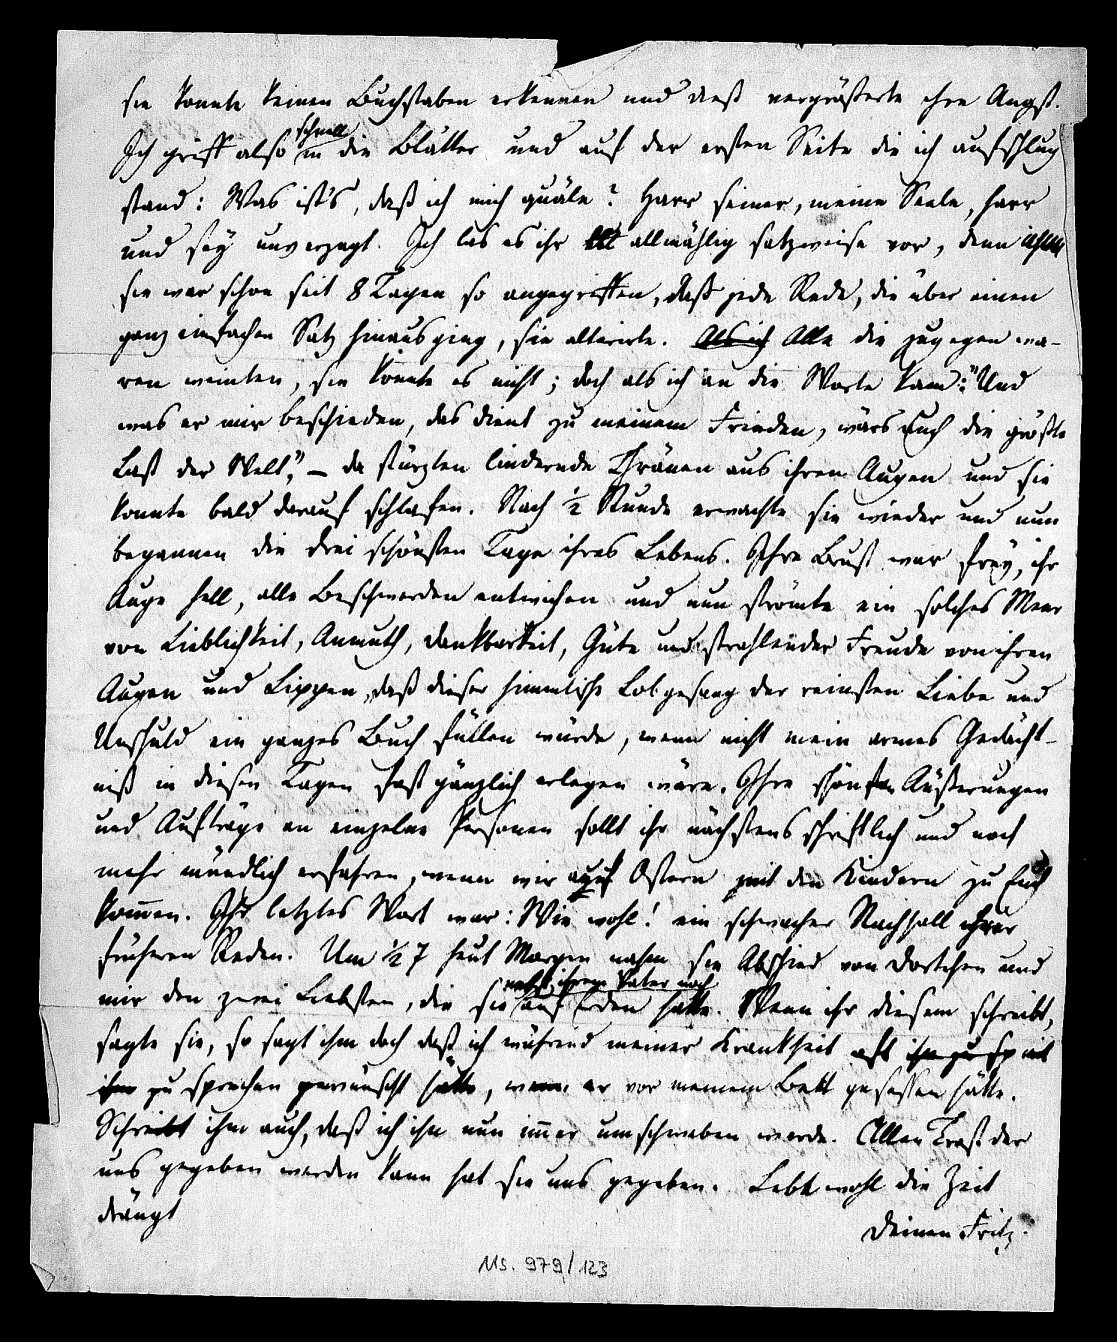 sie konnte keinen Buchstaben erkennen und dieß vergrößerte ihre Angst.
schnell
Ich griff also in die Blätter und auf der ersten Seite die ich aufschlug
stand: Was ist's, daß ich mich quäle? Harr seiner, meine Seele, harr
und sey unverzagt. Ich las es ihr allmählig satzweise vor, denn
sie war schon seit 8 Tagen so angegriffen, daß jede Rede, die über einen
ganz einfachen Satz hinausging, sie alterirte. Als ich Alle die zugegen wa-
ren weinten, sie konnte es nicht; doch als ich an die Worte kam: "Und
was er mir beschieden, das dient zu meinem Frieden, wärs auch die größte
Last der Welt", – da stürzten lindernde Thränen aus ihren Augen und sie
konnte bald darauf schlafen. Nach ½ Stunde erwachte sie wieder und nun
begannen die drei schönsten Tage ihres Lebens. Ihre Brust war frey, ihr
Auge hell, alle Beschwerden entwichen und nun strömte ein solches Meer
von Lieblichkeit, Anmuth, Dankbarkeit, Güte und strahlender Freude von ihren
Augen und Lippen, daß dieser himmlische Lobgesang der reinsten Liebe und
Unschuld ein ganzes Buch füllen würde, wenn nicht mein armes Gedächt-
niß in diesen Tagen fast gänzlich erlegen wäre. Ihre schönsten Äußerungen
und Aufträge an einzelne Personen sollt ihr nächstens schriftlich und noch
mehr mündlich erfahren, wenn wir auf Ostern mit den Kindern zu Euch
kommen. Ihr letztes Wort war: Wie wohl! ein schwacher Nachhall ihrer
früheren Reden. Um ½ 7 heut Morgen nahm sie Abschied von Dortchen und
nebst ihrem Vater noch
mir den zwei Liebsten, die sie auf Erden hatte. Wenn ihr diesem schreibt,
sagte sie, so sagt ihm doch daß ich während meiner Krankheit oft ihn zu sp mit
ihm zu sprechen gewünscht hätte, wenn er vor meinem Bett gesessen hätte.
Schreibt ihm auch, daß ich ihn nun immer umschweben werde. Allen Trost der
uns gegeben werden kann hat sie uns gegeben. Lebt wohl die Zeit
drängt
Deinen Fritz.
Ms. 979/123